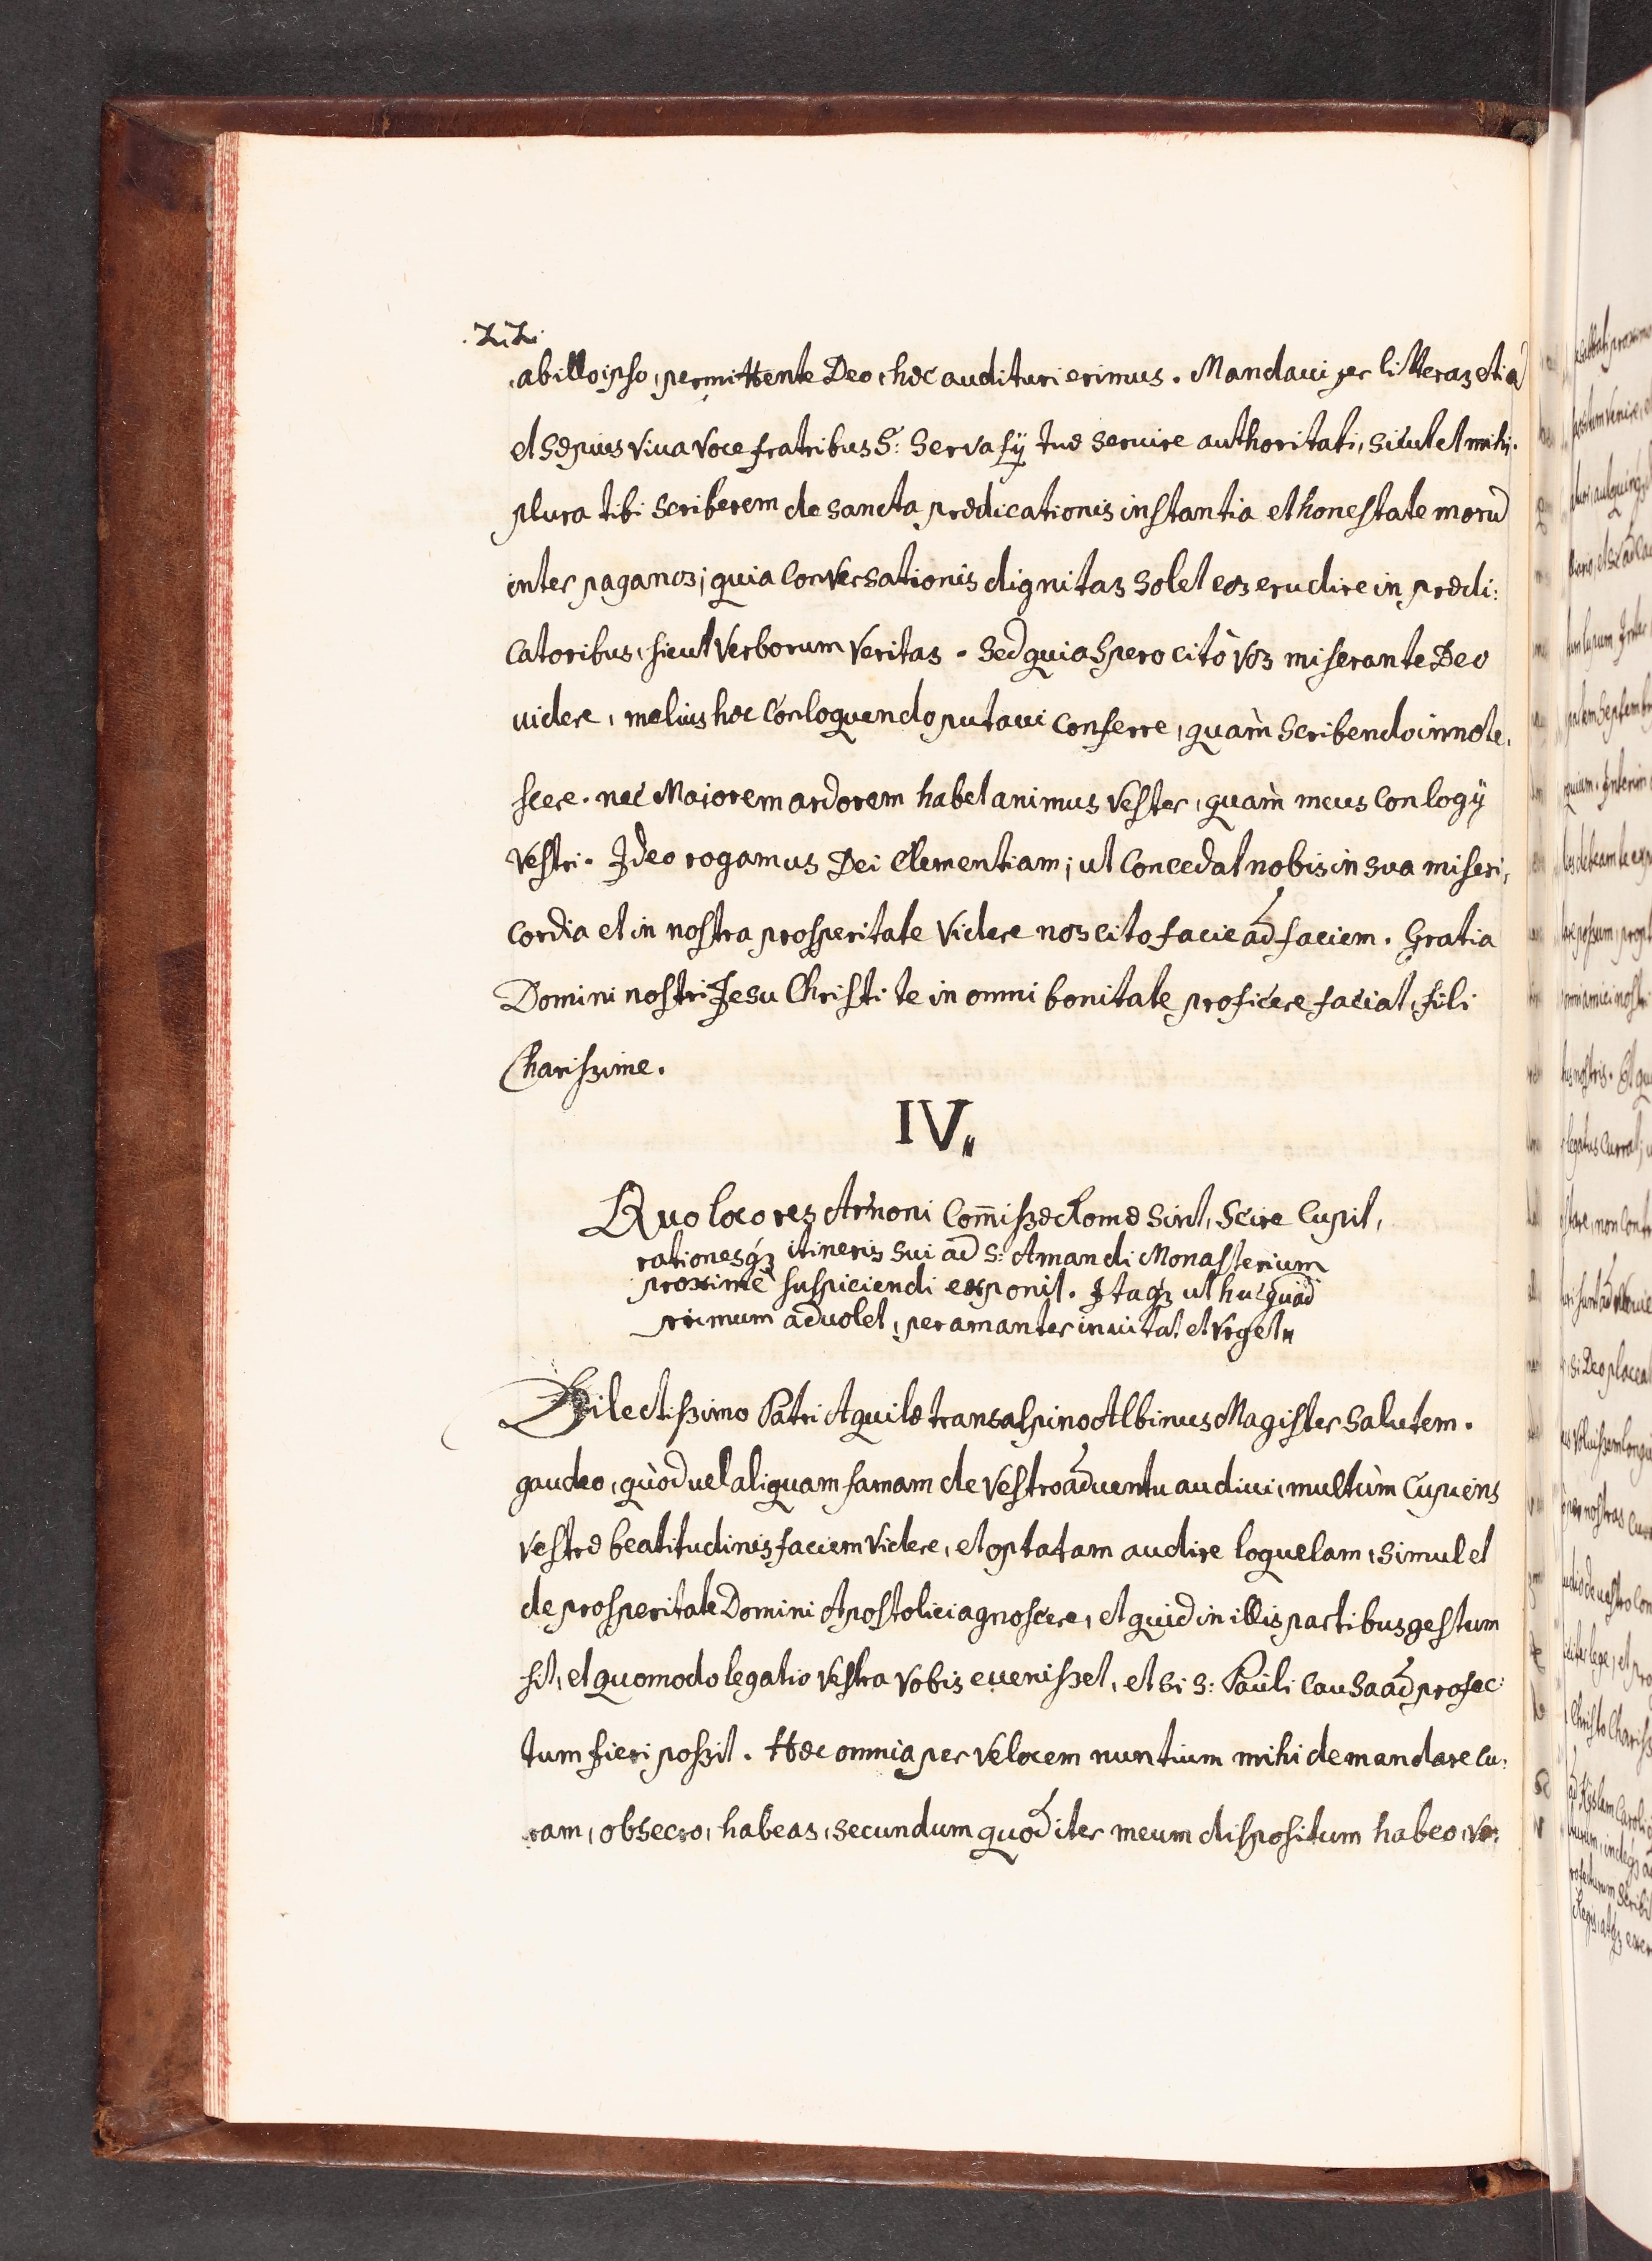 22.
ab illo ipso, permittente Deo, hæc audituri erimus. Mandaui per litteras etiā
et sæpius viua voce fratribus S: Servatÿ tuæ seruire authoritati, sicut et mihi.
plura tibi scriberem de sancta prædicationis instantia et honestate morū
inter paganos; quia conversationis dignitas solet eos erudire in prædi:
catoribus, sicut verborum veritas. Sed quia spero citò vos miserante Deo
uidere, melius hæc conloquendo putaui conferre, quàm scribendo innote,
scere. nec Maiorem ardorem habet animus vester, quàm meus conlogÿ
vestri. Ideo rogamus Dei Clementiam; ut concedat nobis in sua miseri,
cordia et in nostra prosperitate videre nos cito facie ad faciem. Gratia
Domini nostri Jesu Christi te in omni bonitate proficere faciat, fili
Charissime.
IV.
Quo loco res Arnoni Com̄issæ Romæ sint, scire cupit,
rationesq́ʒ itineris sui ad S: Amandi Monasterium
proximè suspiciendi exponit. Itaqʒ ut huc quād
primum aduolet, peramanter inuitat et vrget.
Dilectissimo Patri Aquilæ transalpino Albinus Magister salutem.
gaudeo, quòd uel aliquam famam de vestro aduentu audiui, multùm cupiens
vestræ beatitudinis faciem videre, et optatam audire loquelam, simul et
de prosperitate Domini Apostolici agnoscere, et quid in illis partibus gestum
sit, et quomodo legatio vestra vobis euenisset, et si S: Pauli causa ad profec:
tum fieri possit. Hæc omnia per velocem nuntium mihi demandare cu:
ram, obsecro, habeas, secundum quod iter meum dispositum habeo, ve: